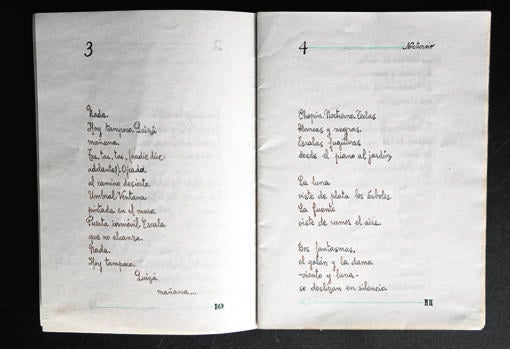 3
Nada.
Hoy tampoco. Quizá
mañana.
Toc, toc, toc, (nadie dice:
adelante!). Ojeada
al camino desierto.
Umbral. Ventana
pintada en el muro.
Puerta inmóvil. Escala
que no alcanza.
Nada.
Hoy tampoco.
Quizá
mañana...
10
4
Nocturno
Chopin. Nocturno. Teclas
blancas y negras.
Escalas fugitivas
desde el piano al jardín.
La luna
viste de plata los árboles.
La fuente
viste de rumor el aire.
Dos fantasmas,
el galán y la dama
-viento y luna-
se deslizan en silencio
11